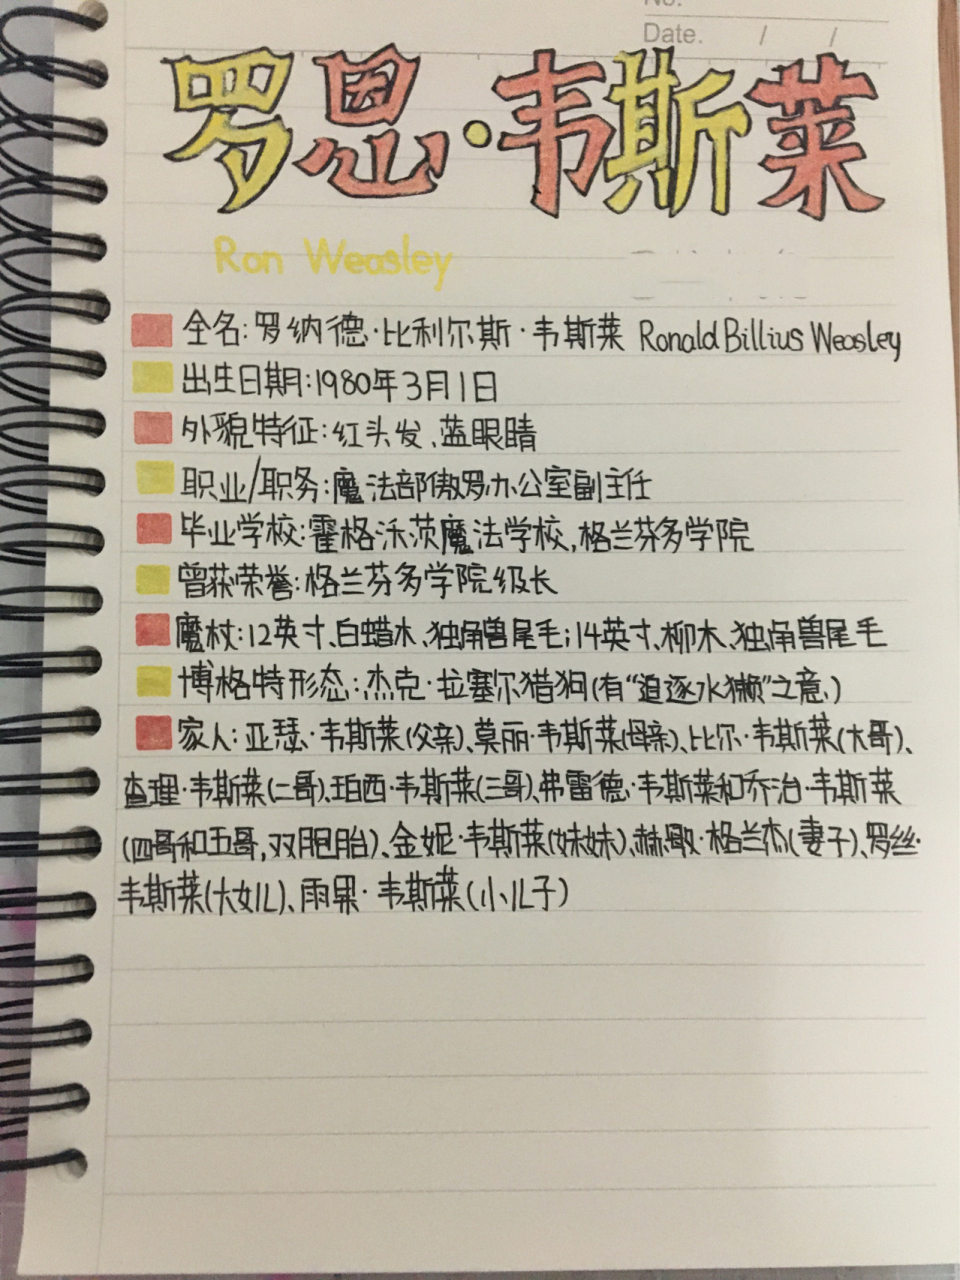 Date. / /
罗恩·韦斯莱
Ron Weasley
全名:罗纳德·比利尔斯·韦斯莱 Ronald Billius Weasley
出生日期:1980年3月1日
外貌特征:红头发、蓝眼睛
职业/职务:魔法部傲罗办公室副主任
毕业学校:霍格沃茨魔法学校,格兰芬多学院
曾获荣誉:格兰芬多学院级长
魔杖:12英寸、白蜡木、独角兽尾毛;14英寸、柳木、独角兽尾毛
博格特形态:杰克·拉塞尔猎狗(有“追逐水獭”之意、)
家人:亚瑟·韦斯莱(父亲)、莫丽·韦斯莱(母亲)、比尔·韦斯莱(大哥)、
查理·韦斯莱(二哥)、珀西·韦斯莱(三哥)、弗雷德·韦斯莱和乔治·韦斯莱
(四哥和五哥,双胞胎)、金妮·韦斯莱(妹妹)、赫敏·格兰杰(妻子)、罗丝·
韦斯莱(大女儿)、雨果·韦斯莱(小儿子)